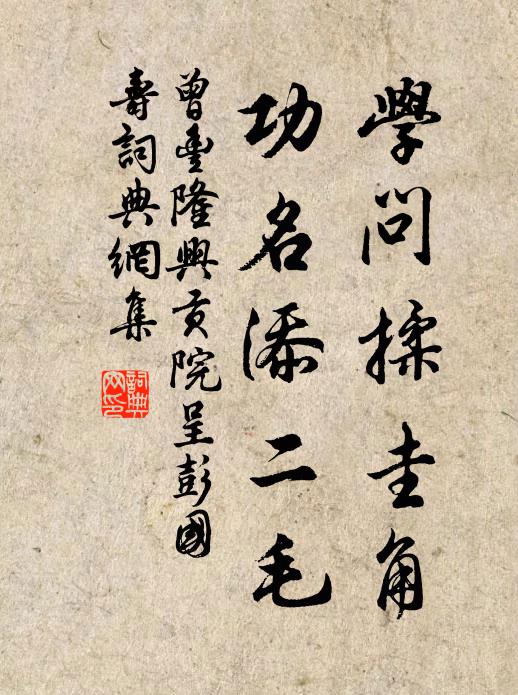 學問揉圭角
功名添二毛
曾豊隆興貢院呈彭國
壽詞典網集
詞典網印